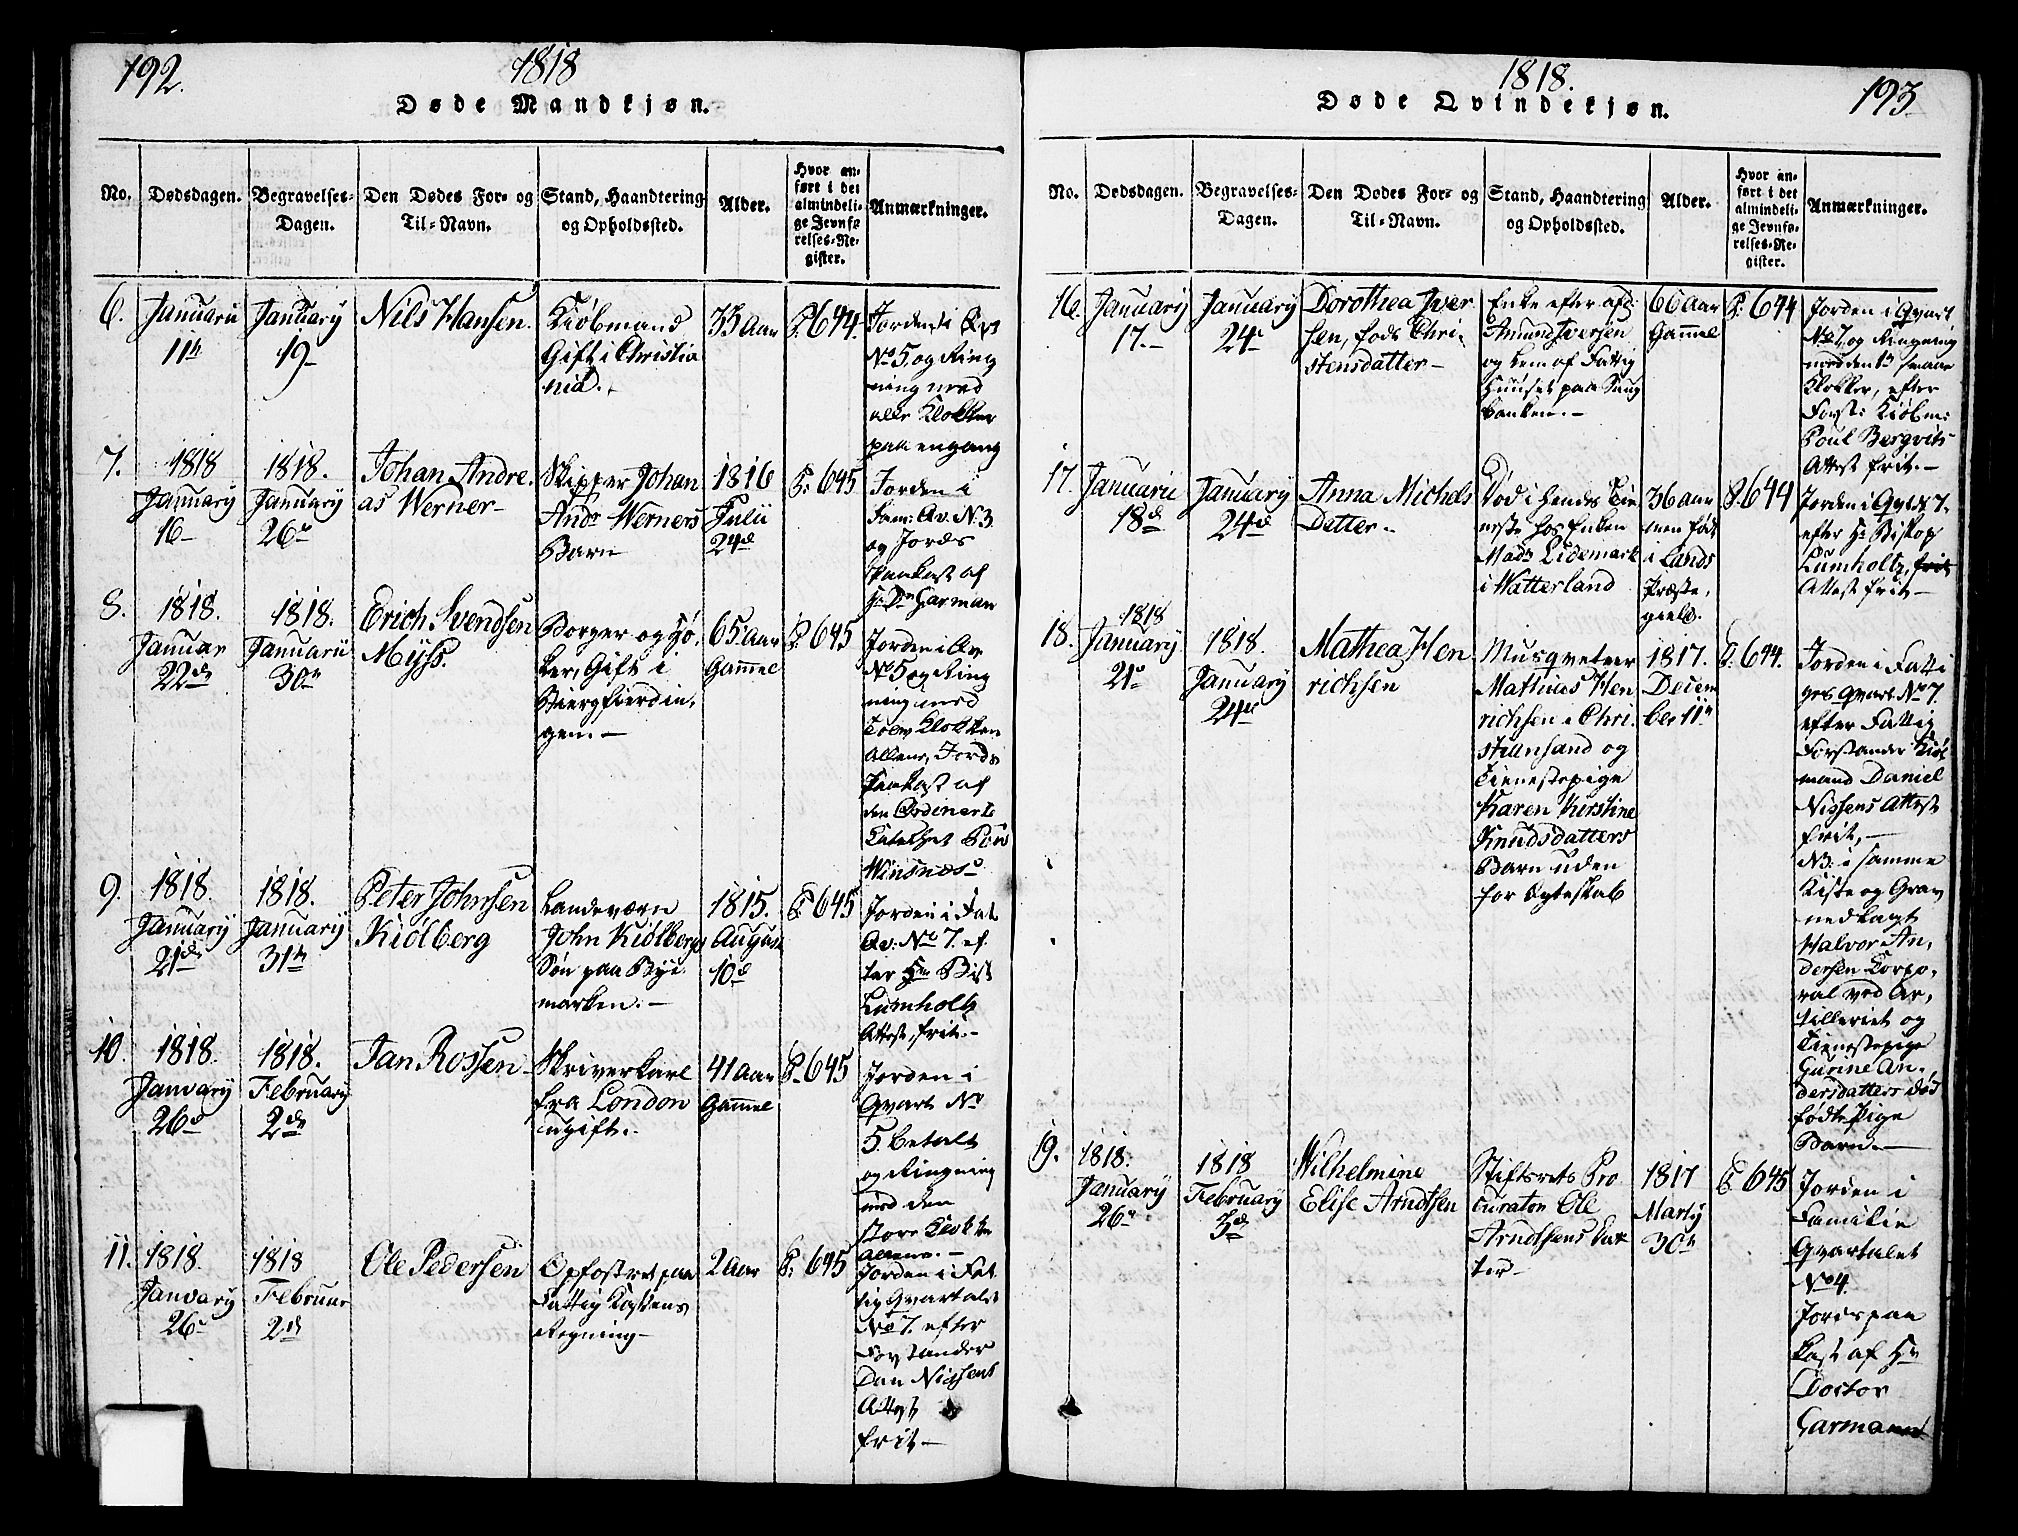 192.
1818
Døde Mandkjøn.
No.
Dødsdagen.
Begravelses-
Dagen.
Den Dødes For- og
Til-Navn.
Stand, Haandtering
og Opholdssted.
Alder.
Hvor an-
ført i det
almindeli-
ge Jevnfø
relses-Re-
gister.
Anmærkninger.
6.
Januaru
11te
January
19-
Nils Hansen.
Kiøbmand
Gift i Christia
nia.
35 Aar
P. 644.
Jorden i Qvt
No 5, og Ring
ning med
alle Klokker
paa engang
7.
1818
January
16-
1818.
January
26de
Johan Andre
as Werner-
Skipper Johan
Andr Werners
Barn
1816
Julii
24de
P: 645
Jorden i
Fam: Qv. N 3
og Jords
paakast af
Garman
8.
1818.
Januar
22de
1818.
Januarii
30te
Erich Svendsen
Myss.
Borger og
Gift i
Biergfierdin,
gen.-
65 Aar
Gammel
P. 645
Jorden i Qv
No 5 og Ring
ning med
Klokker
Allene, Jords
Paakast af
den Ordinerte
Catechet
Winsnæs
9.
1818.
January
21de
1818.
January
31te
Peter Johnsen
Kiølberg
Landeværn
John Kiølbergs
Søn paa Bye
marken.-
1815.
August
10de
P: 645
Jorden i Fat
Qv: No 7. ef
ter Hr Bisk
Lumholtz
Attest, frit.-
10.
1818.
January
26de
1818.
February
2de
Jan Rossen
Skriverkarl
fra London
ugift.
41 Aar
Gammel
P. 645
Jorden i
Qvart No
5. betalt
og Ringning
med den
store Klokke
alleene.-
11.
1818.
January
26-
1818
Februar
2de
Ole Pedersen
Opfostret paa
Fattig Kassens
Regning-
2 Aar
P: 645
Jorden i Fat
tig Qvartalet
No 7. efter
Forstander
Dan Nielsens
Attest
frit-
1818.
193
Døde Qvindekjøn.
No.
Dødsdagen.
Begravelses-
Dagen.
Den Dødes For- og
Til-Navn.
Stand, Haandtering
og Opholdssted.
Alder.
Hvor an-
ført i det
almindeli-
ge Jevnfø-
relses-Re-
gister.
Anmærkninger.
16.
January
17.-
January
24de
Dorothea Iver
sen, født Chri-
stensdatter-
Enke efter afg:
Amund Iversen
og Lem af Fattig
Huuset paa Sang
banken.-
66 Aar
Gammel
P: 644
Jorden i Qvart
No 7, og Ringning
med den smaae
Klokker, efter
Forst: Kiøbm:
Poul Bergvits
Attest frit.-
17.
Januarii
18de
January
24de
Anna Michels
Datter.
Død i hendes Tie
neste hos Enken
Mad Lidemark
i Watterland
36 Aar
men født
i Lands
Præste,
gield.
P. 644
Jorden i Qvt N 7.
efter Hr Biskop
Lumholtz,
Attest frit-
18.
1818
January
21de
1818.
January
24de
Mathea Hen
richsen
Musqveteer
Mathias Hen
richsen i Chri.
stiansand og
Tienestepige
Karen Kirstine
Knudsdatters
Barn uden
for Egteskab
1817.
Decem
ber 11te
P: 644.
Jorden i Fatti
ges Qvart No 7.
efter Fattig
Forstander Kiøb
mand Daniel
Nielsens Attest
frit,-
NB: i samme
Kiste og Grav
nedlagt
Halvor An,
dersen Corpo,
ral ved Ar,
tilleriet og
Tienestepige
Gurine An,
dersdatters død
fødte Pige
Barn.-
19.
1818.
January
26de
1818
February
3de
Wilhelmine
Elise Arndtsen
Stiftsrets Pro
curator Ole
Arndtsens Dat
ter-
1817
Marty
30te
P: 645
Jorden i
Familie
Qvartalet
No 4.
Jordspaa
kast af Hr
Doctor
Garmann